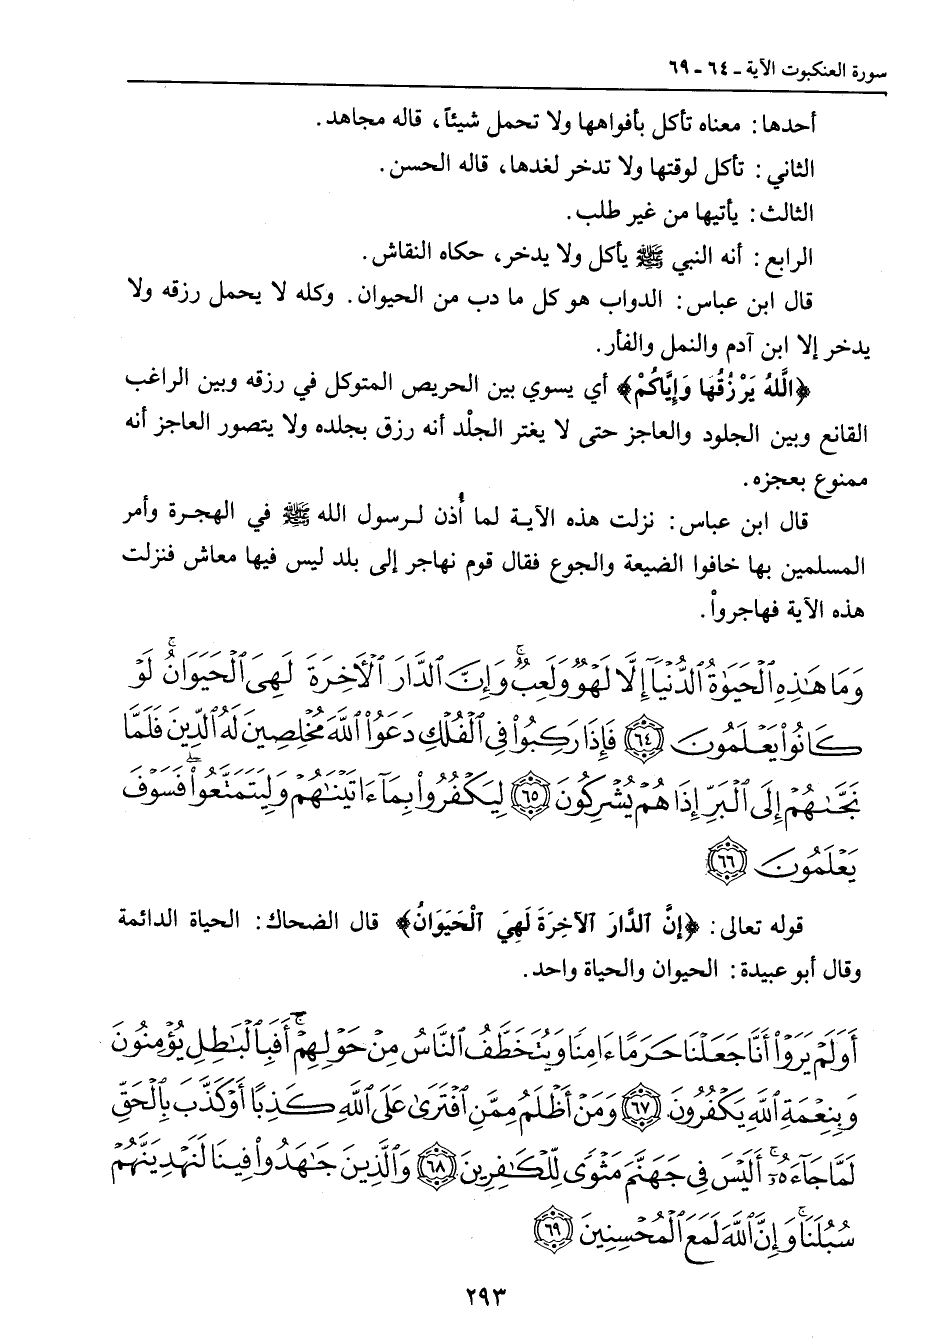 سورة العنكبوت الآية ـ ٦٤ - ٦٩
أحدها: معناه تأكل بأفواهها ولا تحمل شيئاً، قاله مجاهد.
الثاني: تأكل لوقتها ولا تدخر لغدها، قاله الحسن.
الثالث: يأتيها من غير طلب.
الرابع: أنه النبي ﷺ يأكل ولا يدخر، حكاه النقاش.
قال ابن عباس: الدواب هو كل ما دب من الحيوان. وكله لا يحمل رزقه ولا
يدخر إلا ابن آدم والنمل والفأر.
﴿اللَّهُ يَرْزُقُهَا وَإِيَّاكُمْ﴾ أي يسوي بين الحريص المتوكل في رزقه وبين الراغب
القانع وبين الجلود والعاجز حتى لا يغتر الجلْد أنه رزق بجلده ولا يتصور العاجز أنه
ممنوع بعجزه.
قال ابن عباس: نزلت هذه الآية لما أُذن لرسول الله ﷺ في الهجرة وأمر
المسلمين بها خافوا الضيعة والجوع فقال قوم نهاجر إلى بلد ليس فيها معاش فنزلت
هذه الآية فهاجرواْ.
وَمَا هَٰذِهِ ٱلْحَيَوٰةُ ٱلدُّنْيَآ إِلَّا لَهْوٌ وَلَعِبٌ ۚ وَإِنَّ ٱلدَّارَ ٱلْأَخِرَةَ لَهِىَ ٱلْحَيَوَانُ ۚ لَوْ
كَانُوا۟ يَعْلَمُونَ ٦٤ فَإِذَا رَكِبُوا۟ فِى ٱلْفُلْكِ دَعَوُا۟ ٱللَّهَ مُخْلِصِينَ لَهُ ٱلدِّينَ فَلَمَّا
نَجَّىٰهُمْ إِلَى ٱلْبَرِّ إِذَا هُمْ يُشْرِكُونَ ٦٥ لِيَكْفُرُوا۟ بِمَآ ءَاتَيْنَٰهُمْ وَلِيَتَمَتَّعُوا۟ ۖ فَسَوْفَ
يَعْلَمُونَ ٦٦
قوله تعالى: ﴿إِنَّ ٱلدَّارَ ٱلآخِرَةَ لَهِيَ ٱلْحَيَوَانُ﴾ قال الضحاك: الحياة الدائمة
وقال أبو عبيدة: الحيوان والحياة واحد.
أَوَلَمْ يَرَوْا۟ أَنَّا جَعَلْنَا حَرَمًا ءَامِنًا وَيُتَخَطَّفُ ٱلنَّاسُ مِنْ حَوْلِهِمْ ۚ أَفَبِٱلْبَٰطِلِ يُؤْمِنُونَ
وَبِنِعْمَةِ ٱللَّهِ يَكْفُرُونَ ٦٧ وَمَنْ أَظْلَمُ مِمَّنِ ٱفْتَرَىٰ عَلَى ٱللَّهِ كَذِبًا أَوْ كَذَّبَ بِٱلْحَقِّ
لَمَّا جَآءَهُۥٓ ۚ أَلَيْسَ فِى جَهَنَّمَ مَثْوًى لِّلْكَٰفِرِينَ ٦٨ وَٱلَّذِينَ جَٰهَدُوا۟ فِينَا لَنَهْدِيَنَّهُمْ
سُبُلَنَا ۚ وَإِنَّ ٱللَّهَ لَمَعَ ٱلْمُحْسِنِينَ ٦٩
٢٩٣